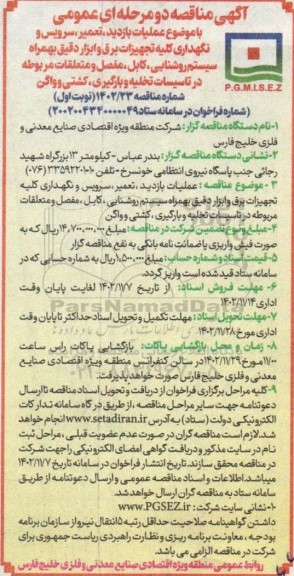 آگهی مناقصه دو مرحله ای عمومی
با موضوع عملیات بازدید، تعمیر، سرویس و
نگهداری کلیه تجهیزات برق و ابزار دقیق بهمراه
سیستم روشنایی، کابل، مفصل و متعلقات مربوطه
در تاسیسات تخلیه و بارگیری، کشتی و واگن
P.G.M.I.S.E.Z
شماره مناقصه ۱۴۰۲/۲۳ (نوبت اول)
(شماره فراخوان در سامانه ستاد ۲۰۰۲۰۰۴۳۴۰۰۰۰۰۴۹)
۱- نام دستگاه مناقصه گزار: شرکت منطقه ویژه اقتصادی صنایع معدنی و
فلزی خلیج فارس
۲- نشانی دستگاه مناقصه گزار: بندرعباس - کیلومتر ۱۳ بزرگراه شهید
رجائی جنب پاسگاه نیروی انتظامی خونسرخ - تلفن ۱۰-۳۳۵۹۲۲۰۱ (۰۷۶)
۳- موضوع مناقصه: عملیات بازدید، تعمیر، سرویس و نگهداری کلیه
تجهیزات برق و ابزار دقیق بهمراه سیستم روشنایی، کابل، مفصل و متعلقات
مربوطه در تاسیسات تخلیه و بارگیری، کشتی و واگن
۴- مبلغ و نوع تضمین شرکت در مناقصه: مبلغ ۱۴,۷۰۰,۰۰۰,۰۰۰ ریال که به
صورت فیش واریزی یا ضمانت نامه بانکی به نفع مناقصه گزار
۵- قیمت اسناد و شماره حساب: مبلغ ۱,۵۰۰,۰۰۰ ریال به شماره حسابی که در
سامانه ستاد قید شده است واریز گردد.
۶- مهلت فروش اسناد: از تاریخ ۱۴۰۲/۱۱/۷ لغایت پایان وقت
اداری ۱۴۰۲/۱۱/۱۴
۷- مهلت تحویل اسناد: مهلت تکمیل و تحویل اسناد حداکثر تا پایان وقت
اداری مورخ ۱۴۰۲/۱۱/۲۸
۸- زمان و محل بازگشایی پاکات: بازگشایی پاکات راس ساعت
مورخ ۱۴۰۲/۱۱/۲۹ در سالن کنفرانس منطقه ویژه اقتصادی صنایع
معدنی و فلزی خلیج فارس صورت خواهد پذیرفت.
۹- کلیه مراحل برگزاری فراخوان از دریافت و تحویل اسناد مناقصه تا ارسال
دعوتنامه جهت سایر مراحل مناقصه، از طریق درگاه سامانه تدارکات
الکترونیکی دولت (ستاد) به آدرس www.setadiran.ir انجام خواهد
شد. لازم است مناقصه گران در صورت عدم عضویت قبلی، مراحل ثبت
نام در سایت مذکور و دریافت گواهی امضای الکترونیکی را جهت شرکت
در مناقصه محقق سازند. تاریخ انتشار فراخوان در سامانه تاریخ ۱۴۰۲/۱۱/۷
میباشد. اطلاعات و اسناد مناقصه عمومی و ارسال دعوتنامه از طریق
سامانه ستاد به مناقصه گران ارسال خواهد شد.
۱۰- نشانی سایت شرکت: www.PGSEZ.ir
داشتن گواهینامه صلاحیت حداقل رتبه ۵ انتقال نیرو از سازمان برنامه
بودجه، معاونت برنامه ریزی و نظارت راهبردی ریاست جمهوری برای
شرکت در مناقصه الزامی می باشد.
روابط عمومی منطقه ویژه اقتصادی صنایع معدنی و فلزی خلیج فارس